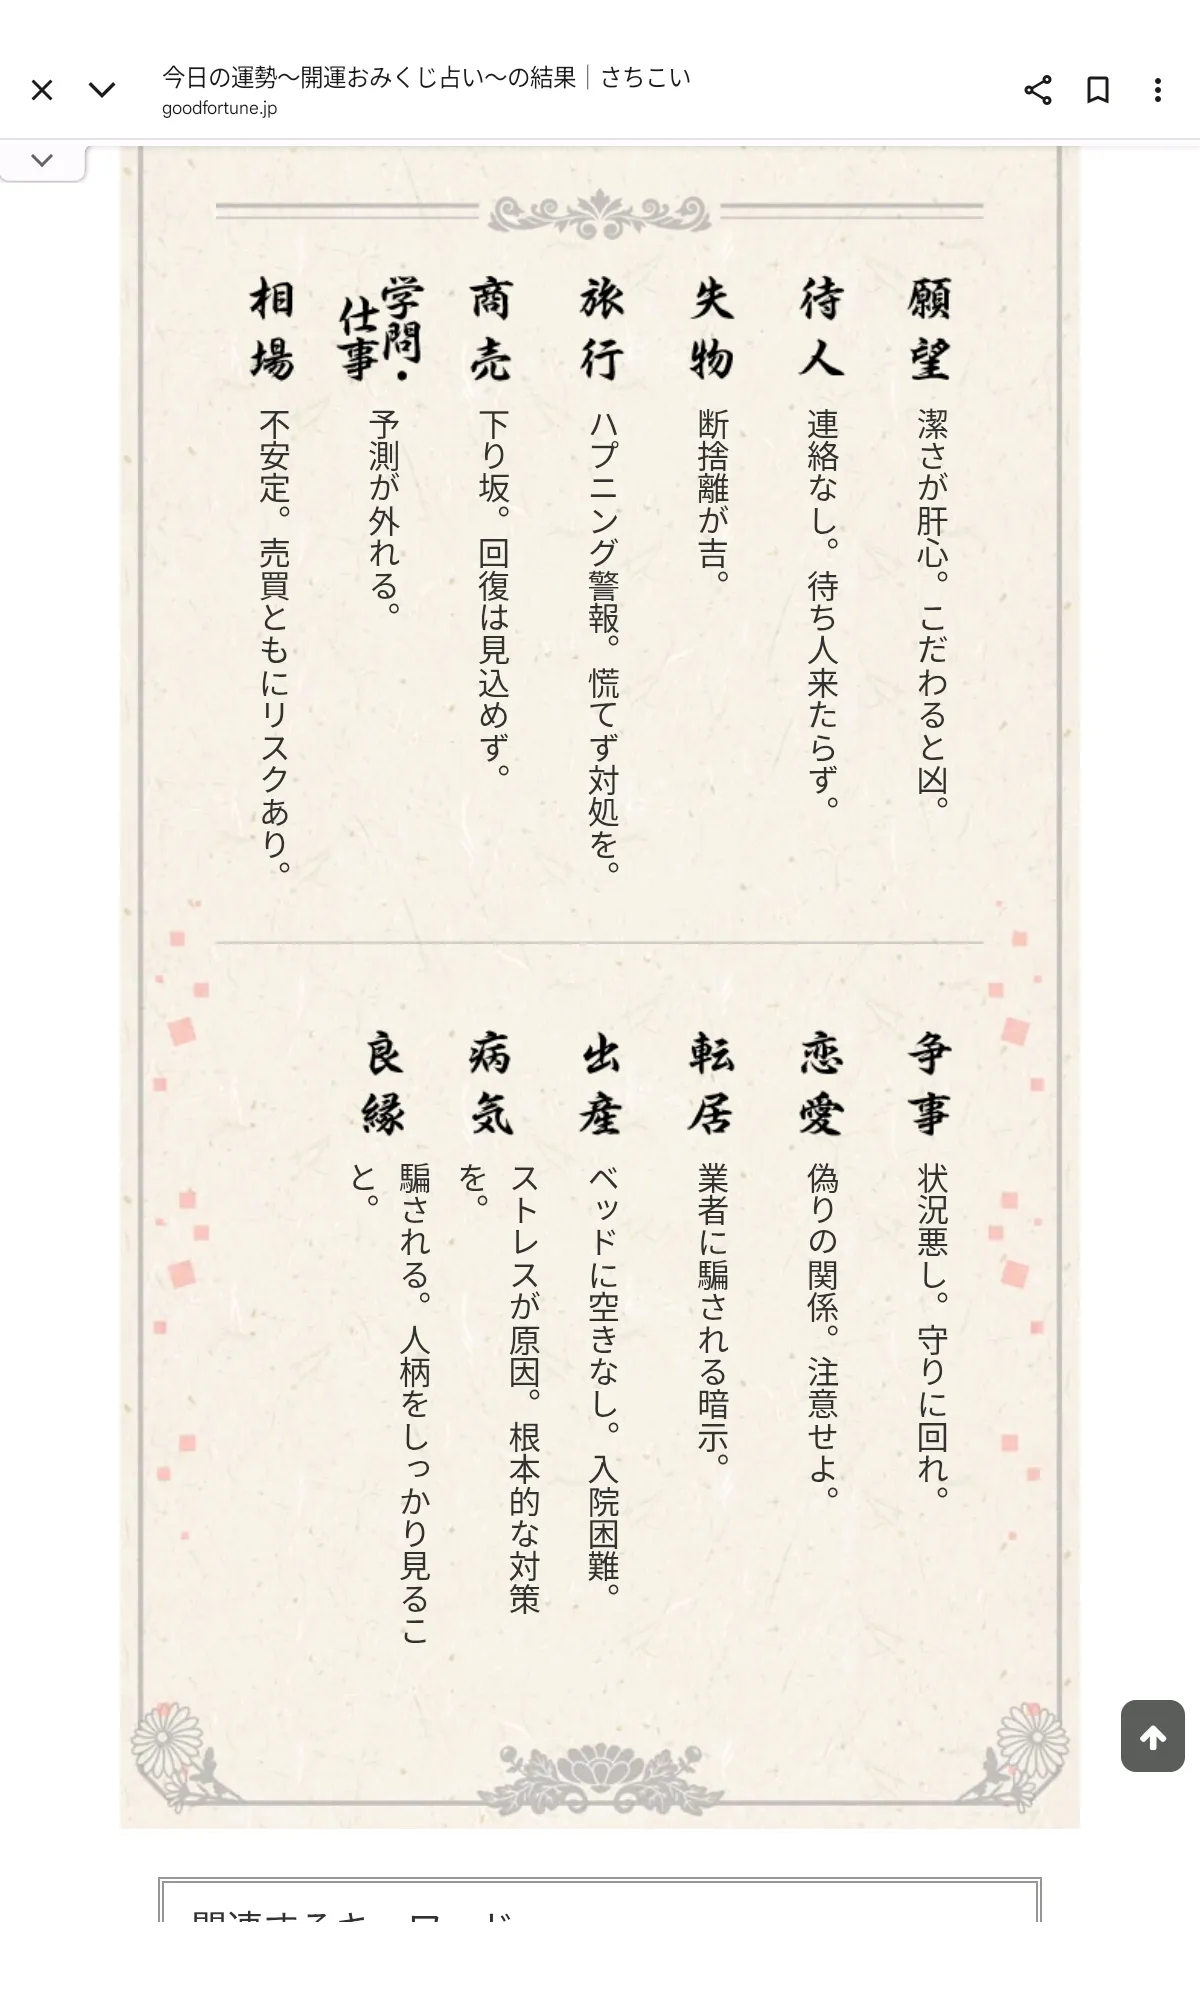 今日の運勢〜開運おみくじ占い〜の結果｜さちこい
goodfortune.jp
願望
潔さが肝心。こだわると凶。
待人
連絡なし。待ち人来たらず。
失物
断捨離が吉。
旅行
ハプニング警報。慌てず対処を。
商売
下り坂。回復は見込めず。
学問・
仕事
予測が外れる。
相場
不安定。売買ともにリスクあり。
争事
状況悪し。守りに回れ。
恋愛
偽りの関係。注意せよ。
転居
業者に騙される暗示。
出産
ベッドに空きなし。入院困難。
病気
ストレスが原因。根本的な対策
を。
良縁
騙される。人柄をしっかり見るこ
と。
関連するキーワード